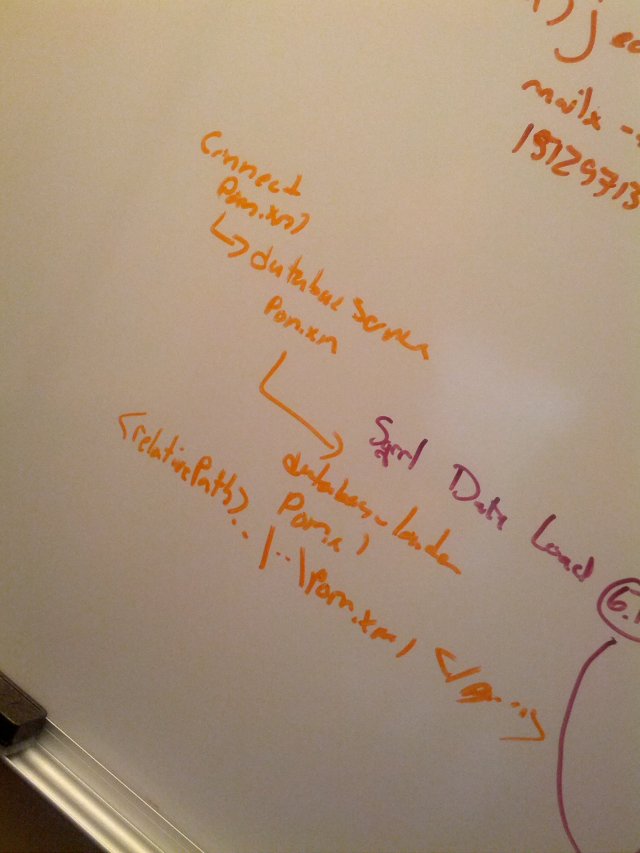 mailx -
Connect
Pom.xml
database Service
Pom.xm
Sqrrl Data Load
database-loader
Pom.x)
<relativePath>..\..\Pom.xml </